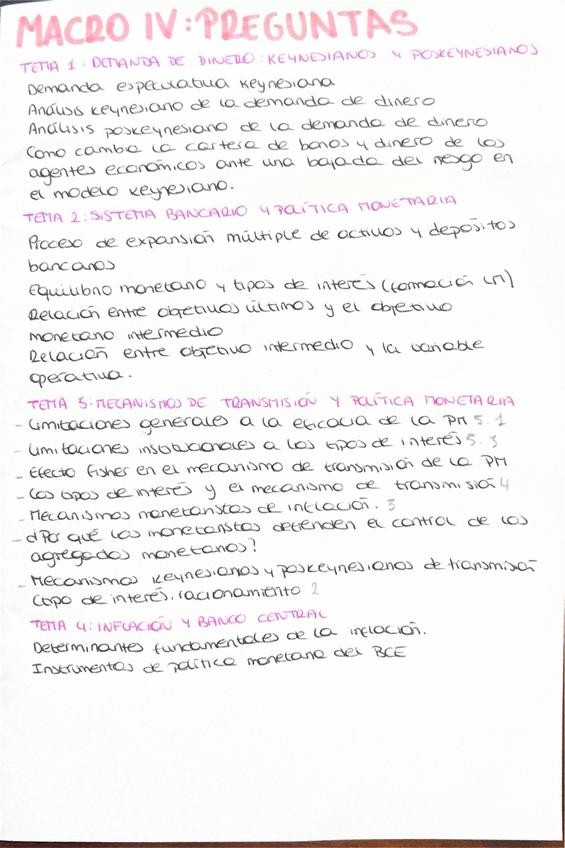 MACRO IV: PREGUNTAS
TEMA 1: DEMANDA DE DINERO: KEYNESIANOS Y POSKEYNESIANOS
Demanda especulativa Keynesiana
Análisis keynesiano de la demanda de dinero
Análisis poskeynesiano de la demanda de dinero
Como cambia la cartera de bonos y dinero de los
agentes económicos ante una bajada del riesgo en
el modelo keynesiano.
TEMA 2: SISTEMA BANCARIO Y POLÍTICA MONETARIA
Proceso de expansión múltiple de activos y depósitos
bancarios
Equilibrio monetario y tipos de interés (formación LM)
Relación entre objetivos últimos y el objetivo
monetario intermedio
Relación entre objetivo intermedio y la variable
operativa.
TEMA 5: MECANISMOS DE TRANSMISIÓN Y POLÍTICA MONETARIA
- Limitaciones generales a la eficacia de la PM 5.1
- Limitaciones institucionales a los tipos de interés 5.3
- Efecto Fisher en el mecanismo de transmisión de la PM
- Los tipos de interés y el mecanismo de transmisión 4
- Mecanismos monetaristas de inflación. 3
- ¿Por qué los monetaristas defienden el control de los
agregados monetarios?
- Mecanismos keynesianos y poskeynesianos de transmisión
(tipo de interés, racionamiento 2
TEMA 4: INFLACIÓN Y BANCO CENTRAL
Determinantes fundamentales de la inflación.
Instrumentos de política monetaria del BCE